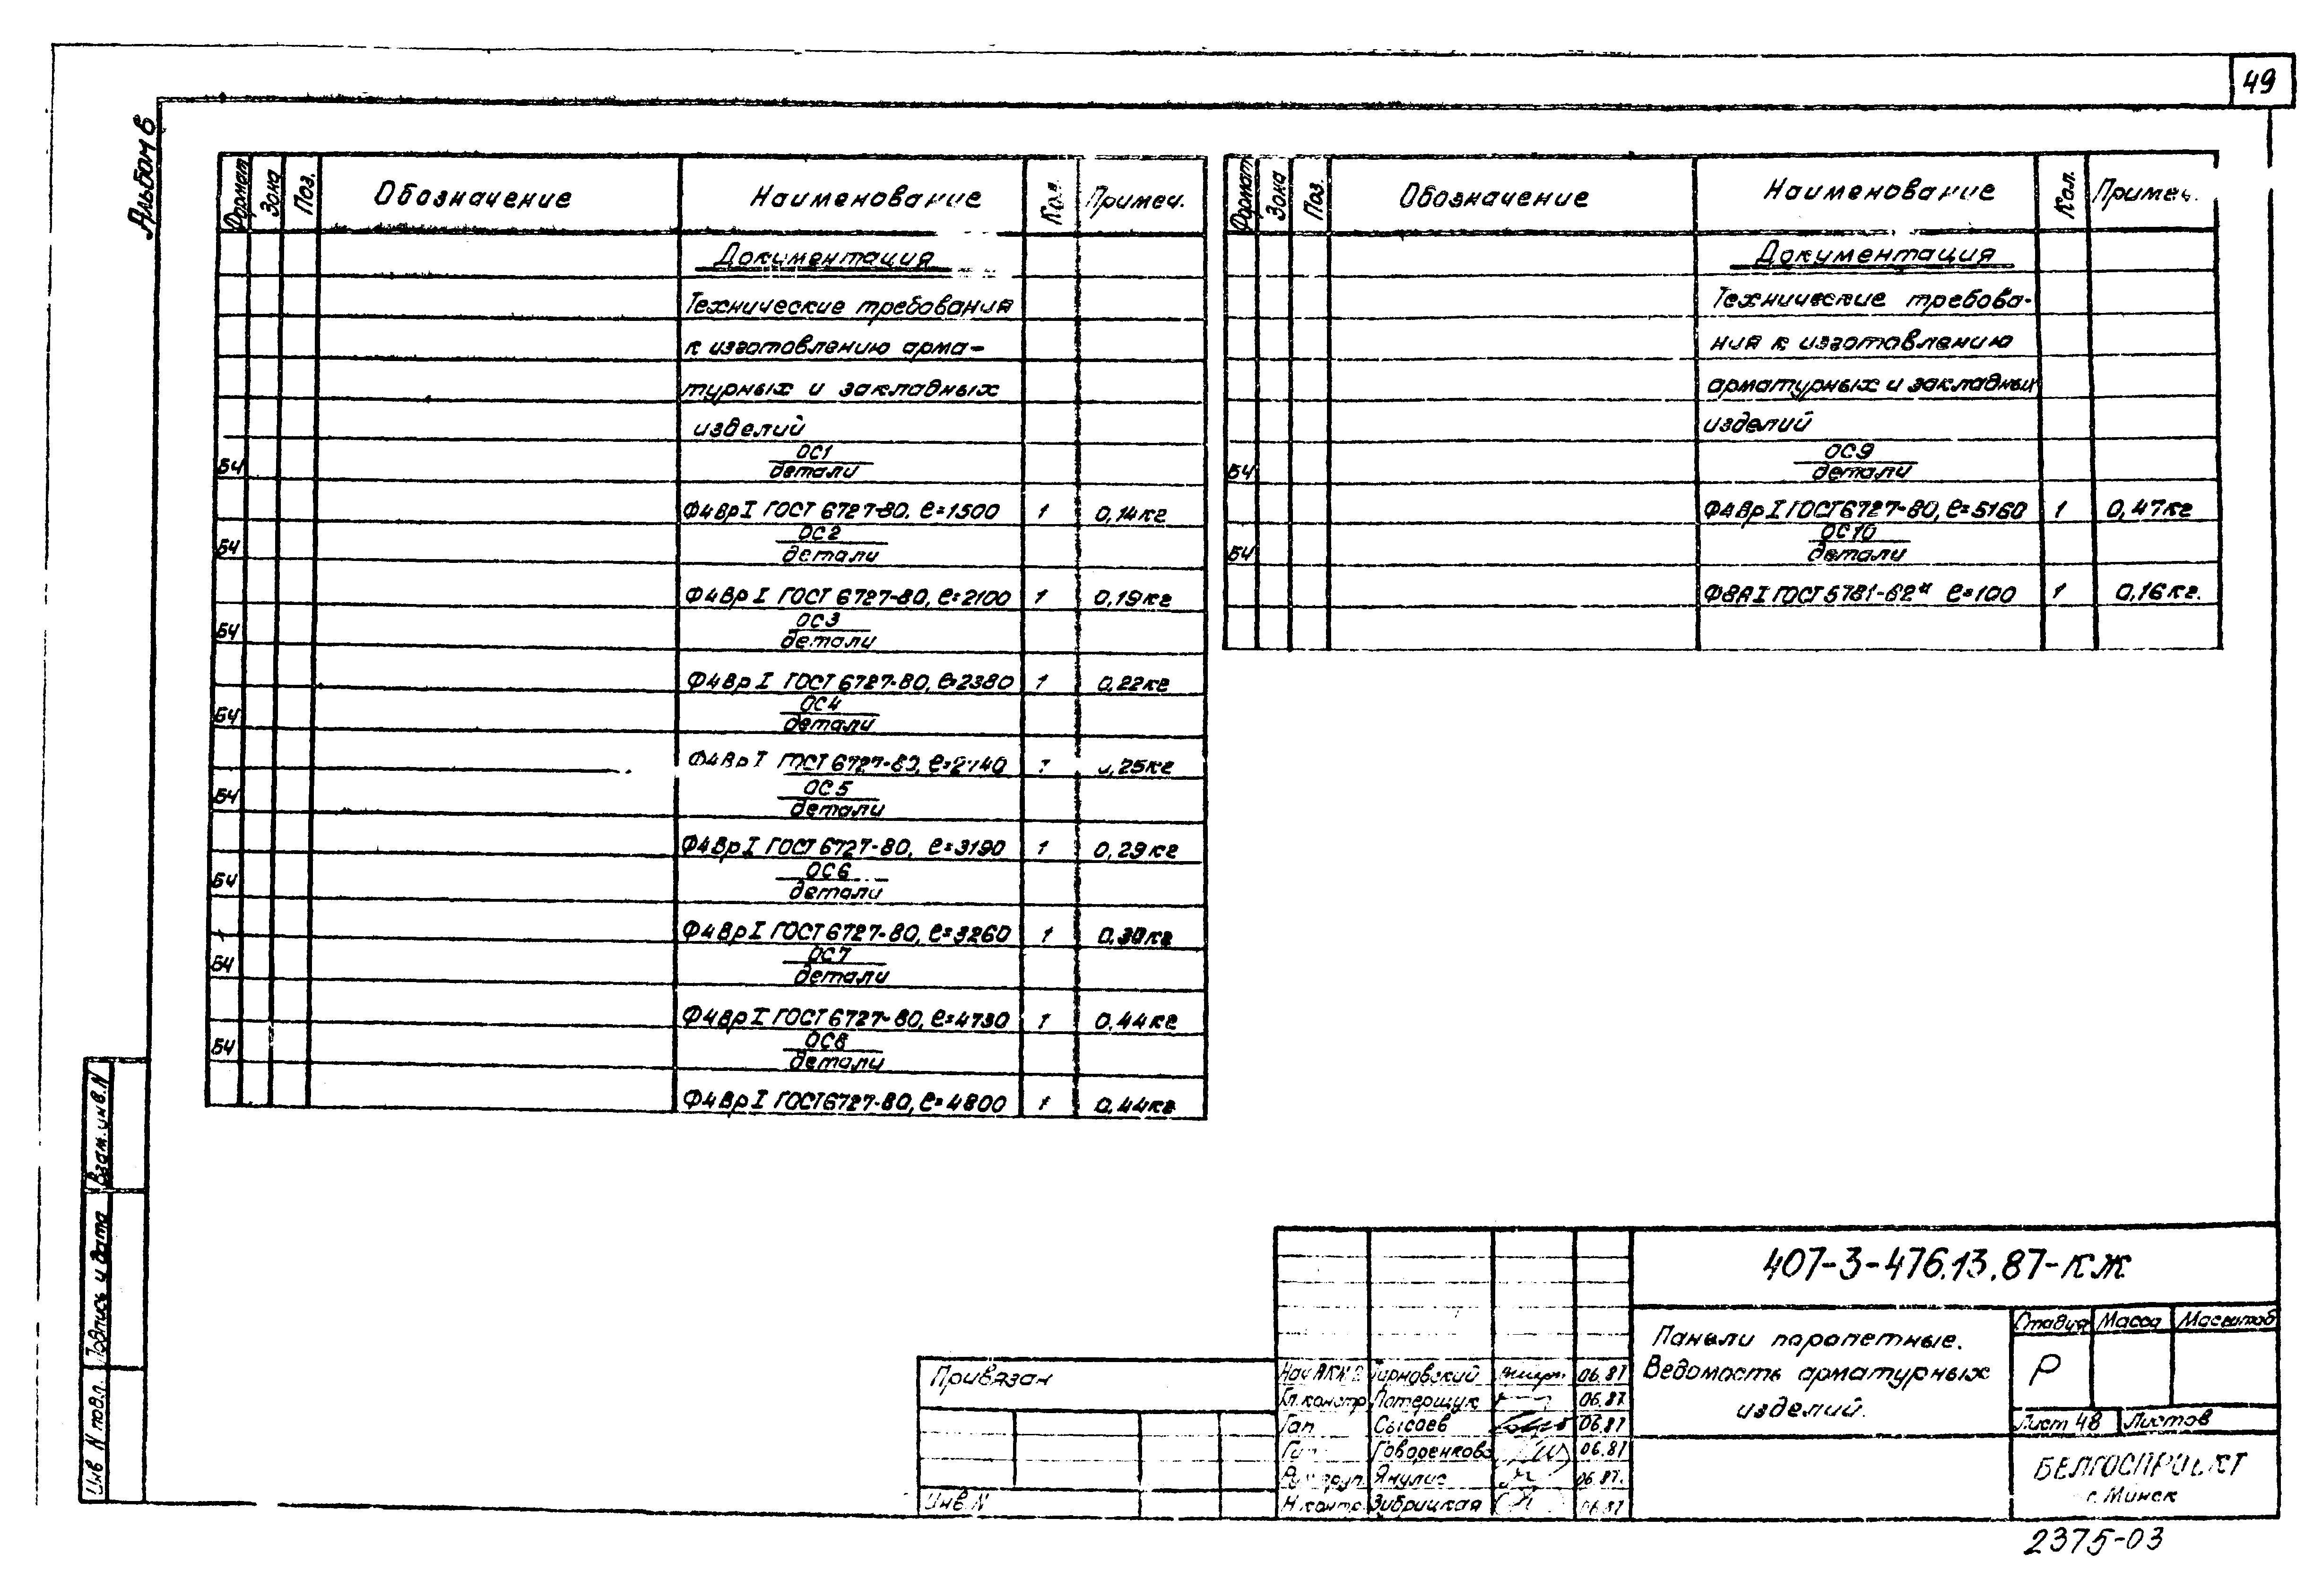 49
Альбом 6
Формат Зона Поз. Обозначение Наименование Кол. Примеч.
Документация
Технические требования
к изготовлению арма-
турных и закладных
изделий
Б4 ОС1
детали
Ф4ВрI ГОСТ 6727-80. ℓ=1500 1 0,14кг
Б4 ОС2
детали
Ф4ВрI ГОСТ 6727-80, ℓ=2100 1 0,19кг
Б4 ОС3
детали
Ф4ВрI ГОСТ 6727-80, ℓ=2380 1 0,22кг
Б4 ОС4
детали
Ф4ВрI ГОСТ 6727-80, ℓ=2740 1 0,25кг
Б4 ОС5
детали
Ф4ВрI ГОСТ 6727-80, ℓ=3190 1 0,29кг
Б4 ОС6
детали
Ф4ВрI ГОСТ 6727-80, ℓ=3260 1 0,30кг
Б4 ОС7
детали
Ф4ВрI ГОСТ 6727-80, ℓ=4730 1 0,44кг
Б4 ОС8
детали
Ф4ВрI ГОСТ 6727-80, ℓ=4800 1 0,44кг
Формат Зона Поз. Обозначение Наименование Кол. Примеч.
Документация
Технические требова-
ния к изготовлению
арматурных и закладных
изделий
Б4 ОС9
детали
Ф4ВрI ГОСТ 6727-80, ℓ=5160 1 0,47кг
Б4 ОС10
детали
Ф8АI ГОСТ 5781-82* ℓ=100 1 0,16кг.
Взам. инв. N
Подпись и дата
Инв N подл.
Привязан
Инв N
Тарновский 06.87
Гл.констр Потерщук 06.87
Гап Сысоев 06.87
Гип Говоренкова 06.87
Рук. груп. Янулис 06.87.
Н.контр. Зибрицкая 06.87
407-3-476.13.87-КЖ
Панели парапетные.
Ведомость арматурных
изделий.
Стадия Масса Масштаб
Р
Лист 48 Листов
БЕЛГОСПРОЕКТ
г. Минск
2375-03